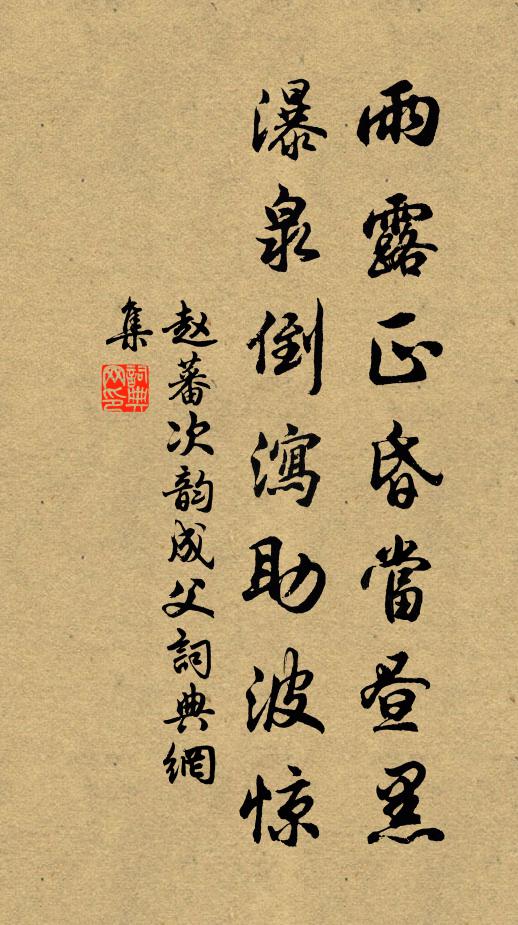 雨露正昏當昼黑
瀑泉倒瀉助波惊
赵蕃次韵成父詞典網
集
詞典網印